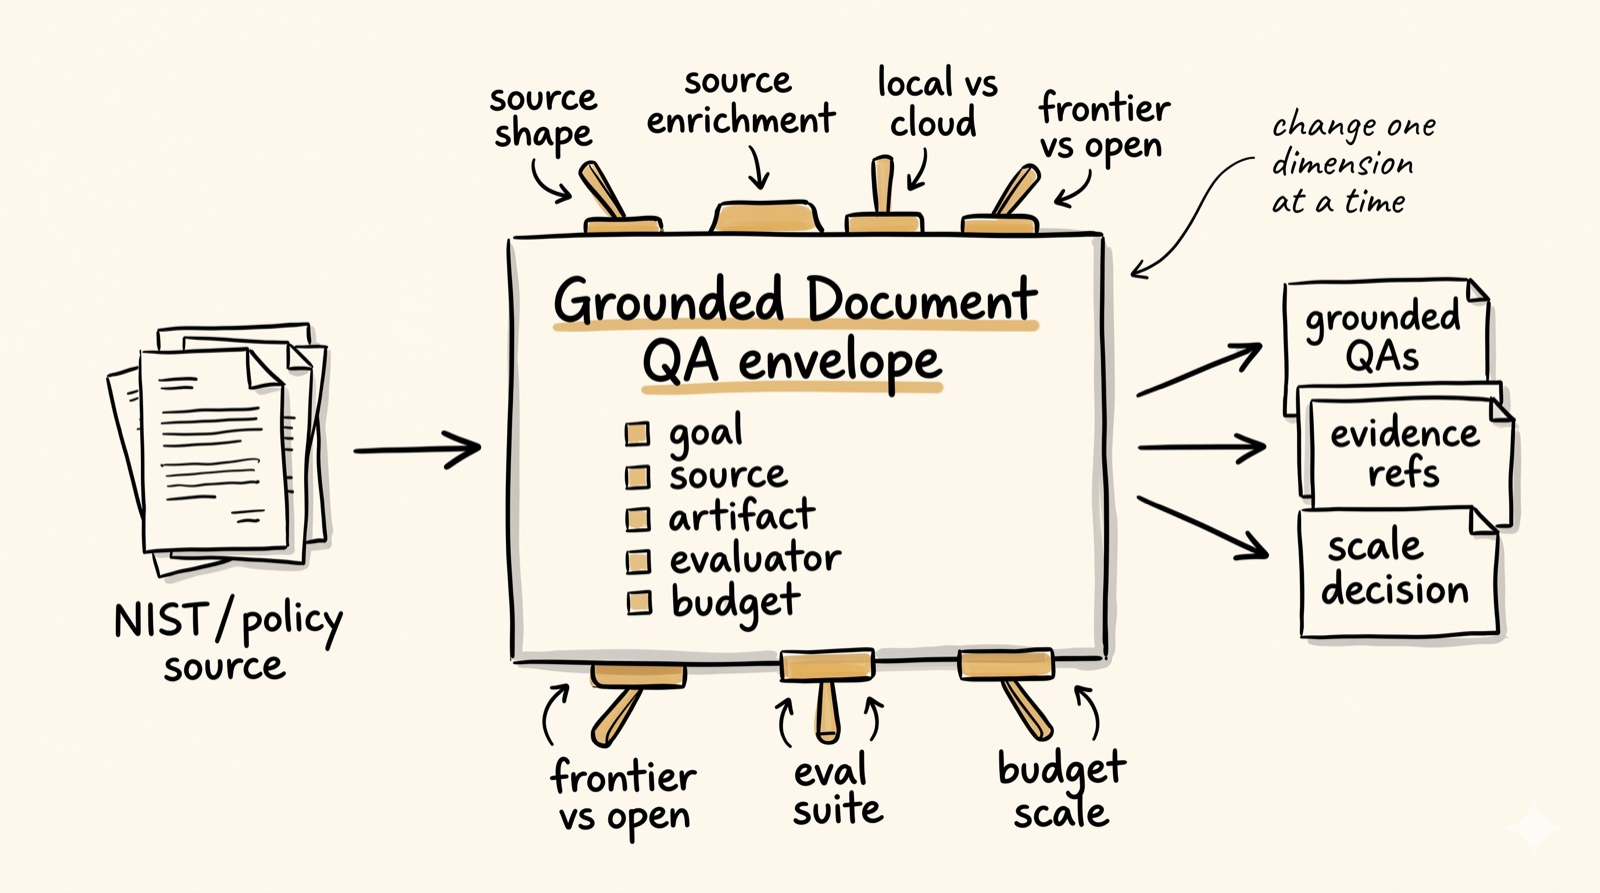 source
shape
source
enrichment
local vs
cloud
frontier
vs open
change one
dimension
at a time
Grounded Document
QA envelope
goal
source
artifact
evaluator
budget
NIST/policy
source
grounded
QAs
evidence
refs
scale
decision
frontier
vs open
eval
suite
budget
scale